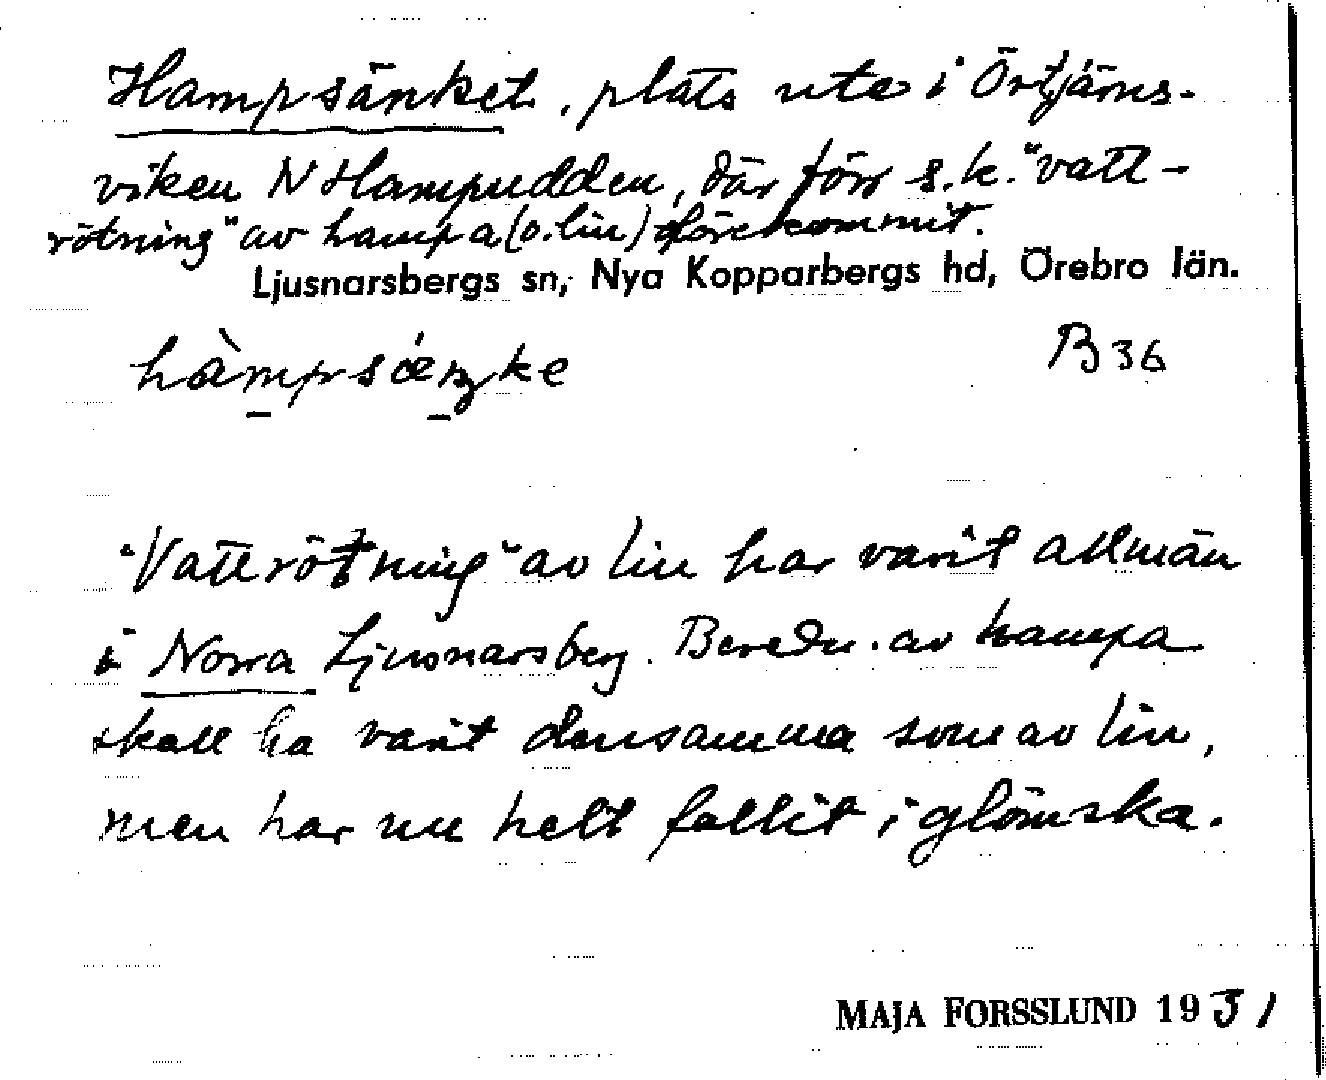 Hampsänket, plats ute i Örtjärns-
viken N Hampudden, där förr s.k. "vatt-
rötning" av hampa (o. lin) förekommit.
Ljusnarsbergs sn, Nya Kopparbergs hd, Örebro län.
hàmpsáeŋke B 36
"Vattrötning" av lin har varit allmän
i Norra Ljusnarsberg. Beredn. av hampa
skall ha varit densamma som av lin,
men har nu helt fallit i glömska.
MAJA FORSSLUND 1951